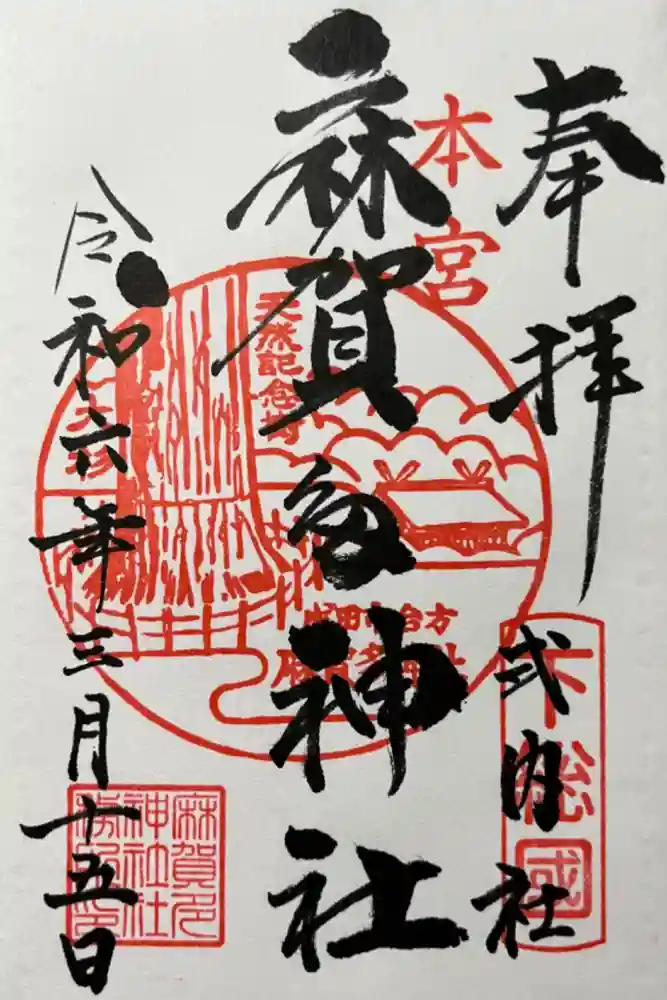 奉拝
式内社
下総
國
本宮
麻賀多神社
天然記念樹
成田市台方
麻賀多神社
令和六年三月十五日
麻賀多
神社社
務所印